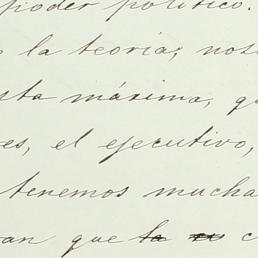 poder político.
la teoría; nos
sta máxima, qu
es, el ejecutivo,
tenemos mucha
an que la c